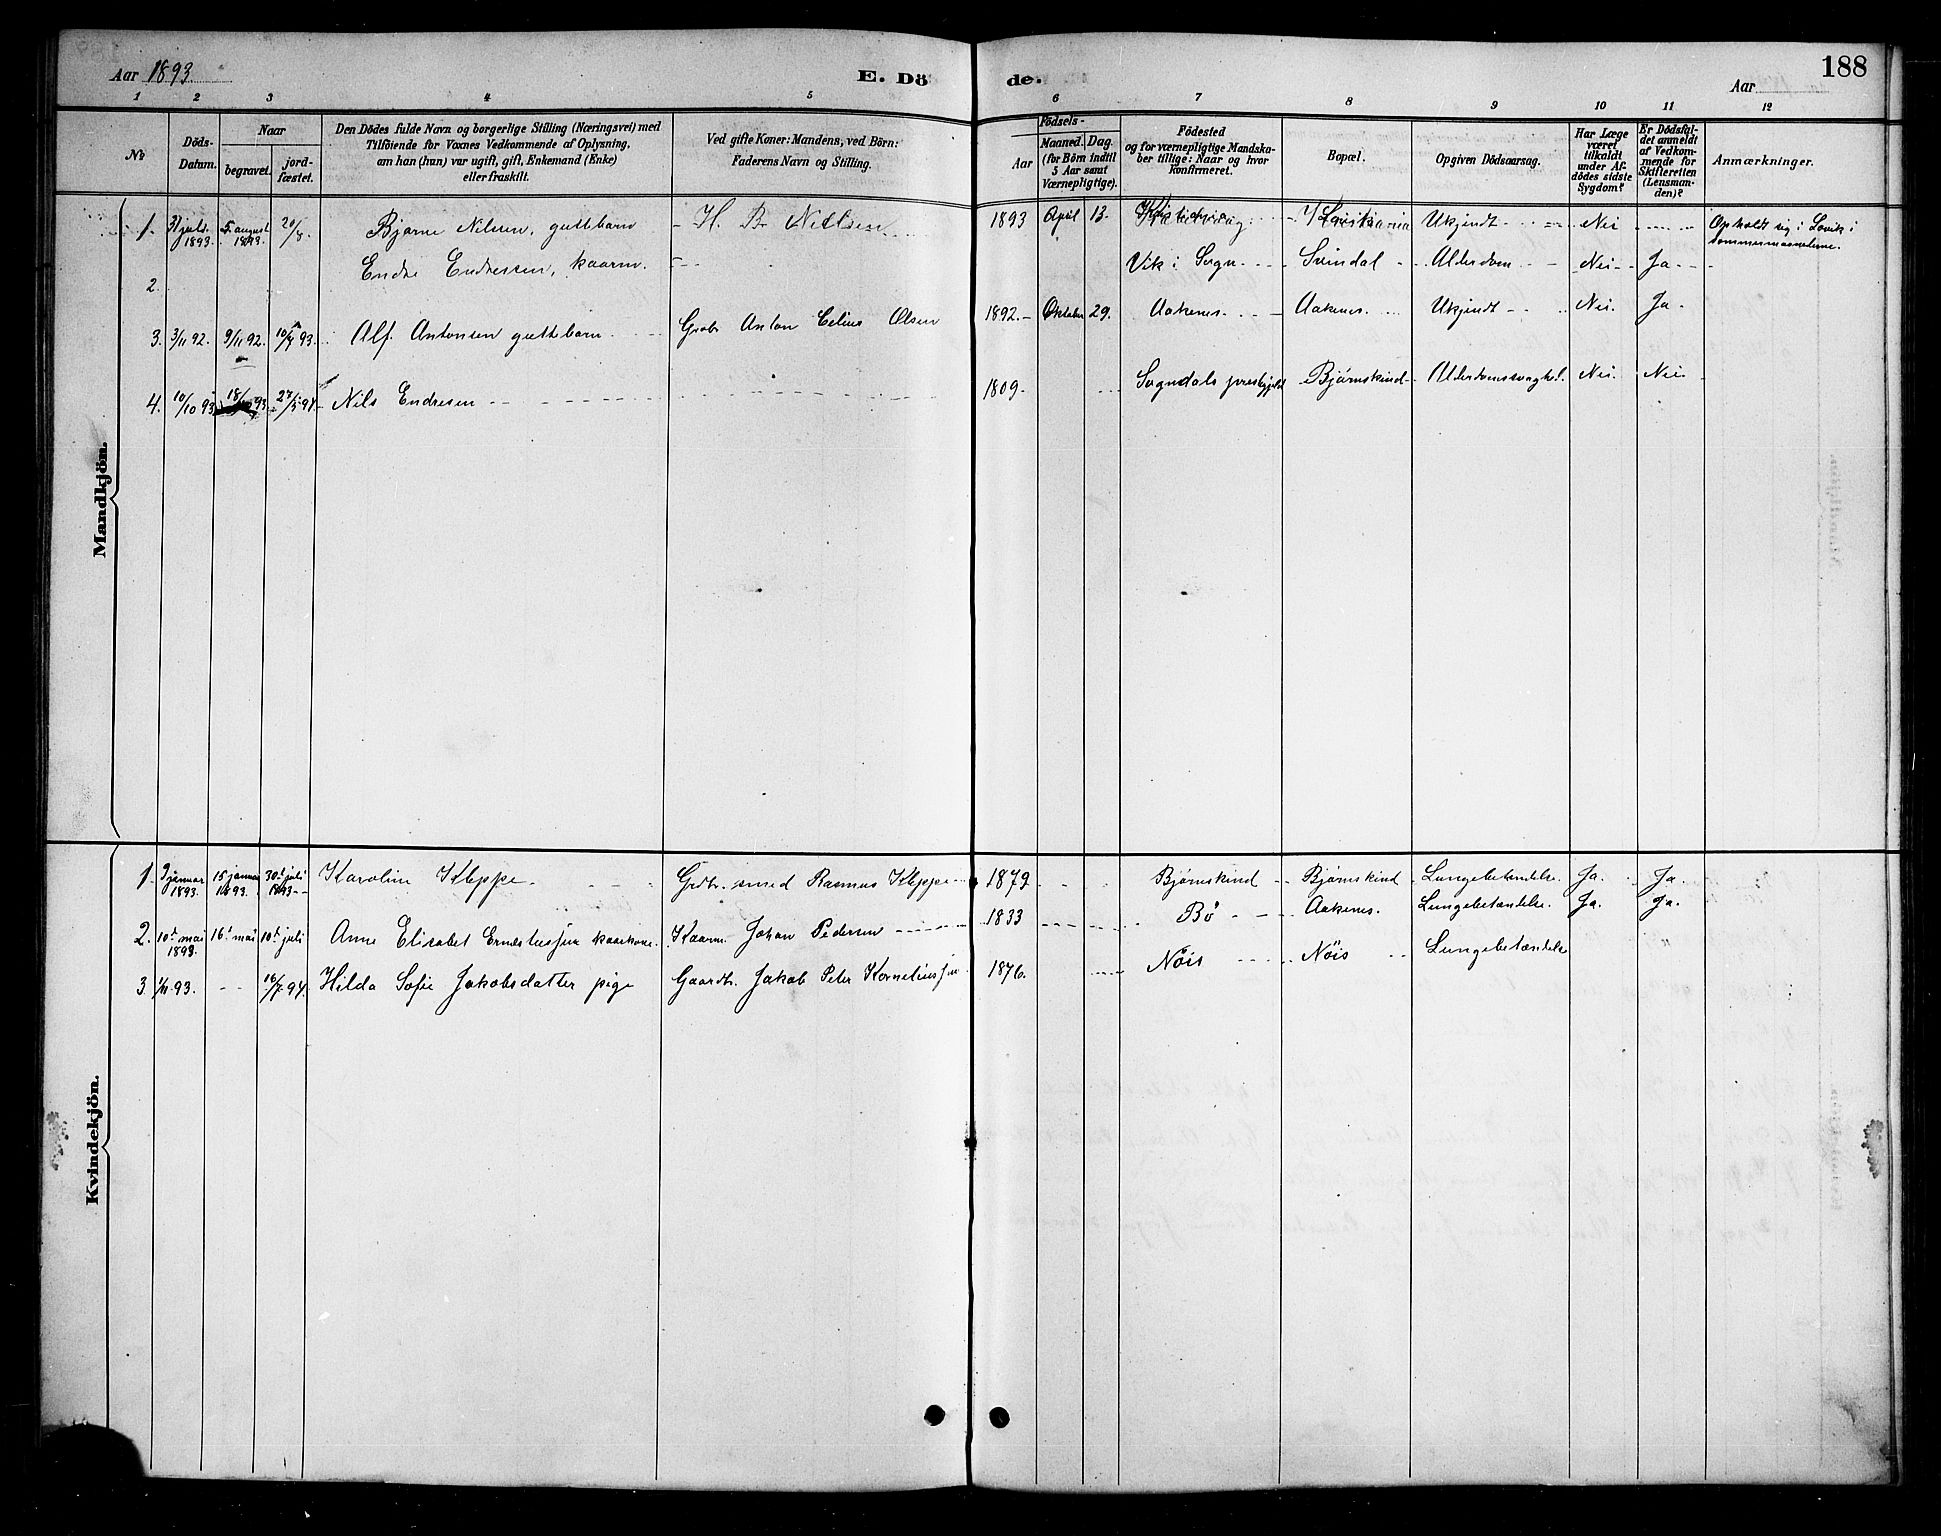 Aar 1893.
E. Dö
de.
Aar
188
1 2 3 4 5 6 7 8 9 10 11 12
No
Döds-Datum.
Naar
begravet.
jord-fæstet.
Den Dödes fulde Navn og borgerlige Stilling (Næringsvei) med
Tilföiende for Voxnes Vedkommende af Oplysning,
om han (hun) var ugift, gift, Enkemand (Enke)
eller fraskilt.
Ved gifte Koner: Mandens, ved Börn:
Faderens Navn og Stilling.
Födsels-
Aar
Maaned. Dag.
(for Börn indtil
5 Aar samt
Værnepligtige).
Födested
og for værnepligtige Mandska-
ber tillige: Naar og hvor
konfirmeret.
Bopæl.
Opgiven Dödsaarsag.
Har Læge
været
tilkaldt
under Af-
dödes sidste
Sygdom?
Er Dödsfal-
det anmeldt
af Vedkom-
mende for
Skifteretten
(Lensman-
den)?
Anmærkninger.
Mandkjön.
1. 31 juli 1893. 5. august 1893. 20/8. Bjarne Nilsen, guttebarn H. B. Nilsen 1893 April 13. Kristiania Ukjendt Nei Opholdt sig i Lovik i
sommermaanederne.
2. Endre Endressen, kaarm. Vik i Sogn Svindal Alderdom Nei Ja
3. 3/11 92. 9/11 92. 93. Alf Antonsen guttebarn Grdbr. Anton Edius Olsen 1892. Oktober 29. Aakenes. Aakenes. Ukjendt Nei. Ja.
4. 10/10 93 18/10 93. 27/5 94. Nils Endresen 1809 Sogndals prestgjeld Bjørnskind Alderdomssvaghed. Nei. Nei
Kvindekjön.
1. 9 januar 1893. 15 januar 1893. 30t juli 1893 Karoline Kleppe Grdbr. smed Rasmus Kleppe 1879 Bjørnskind Bjørnskind Lungebetændelse. Ja. Ja.
2. 10t mai 1893. 16t mai 10t juli Anne Elisabet Ernestusjun kaarkone. Kaarm. Johan Pedersen 1833 Bø Aakenes. Lungebetændelse. Ja. Ja.
3 1/11 93. 16/7 94. Hilda Sofie Jakobsdatter pige Gaardbr. Jakob Peter Korneliussen 1876. Nöis Nöis Lungebetændelse